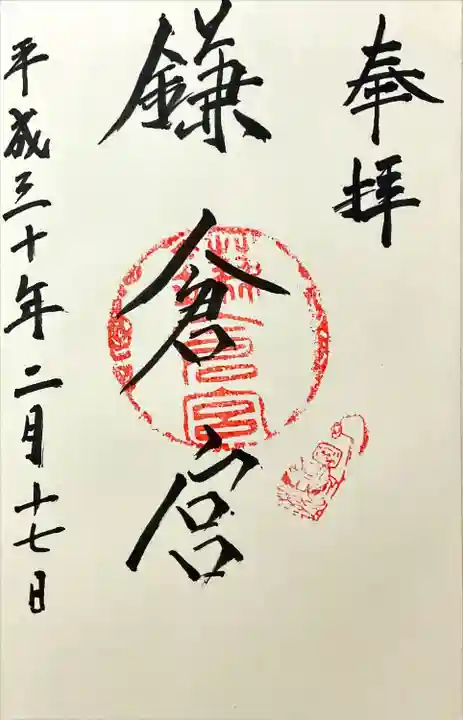 奉拝
鎌倉宮
平成三十年二月十七日